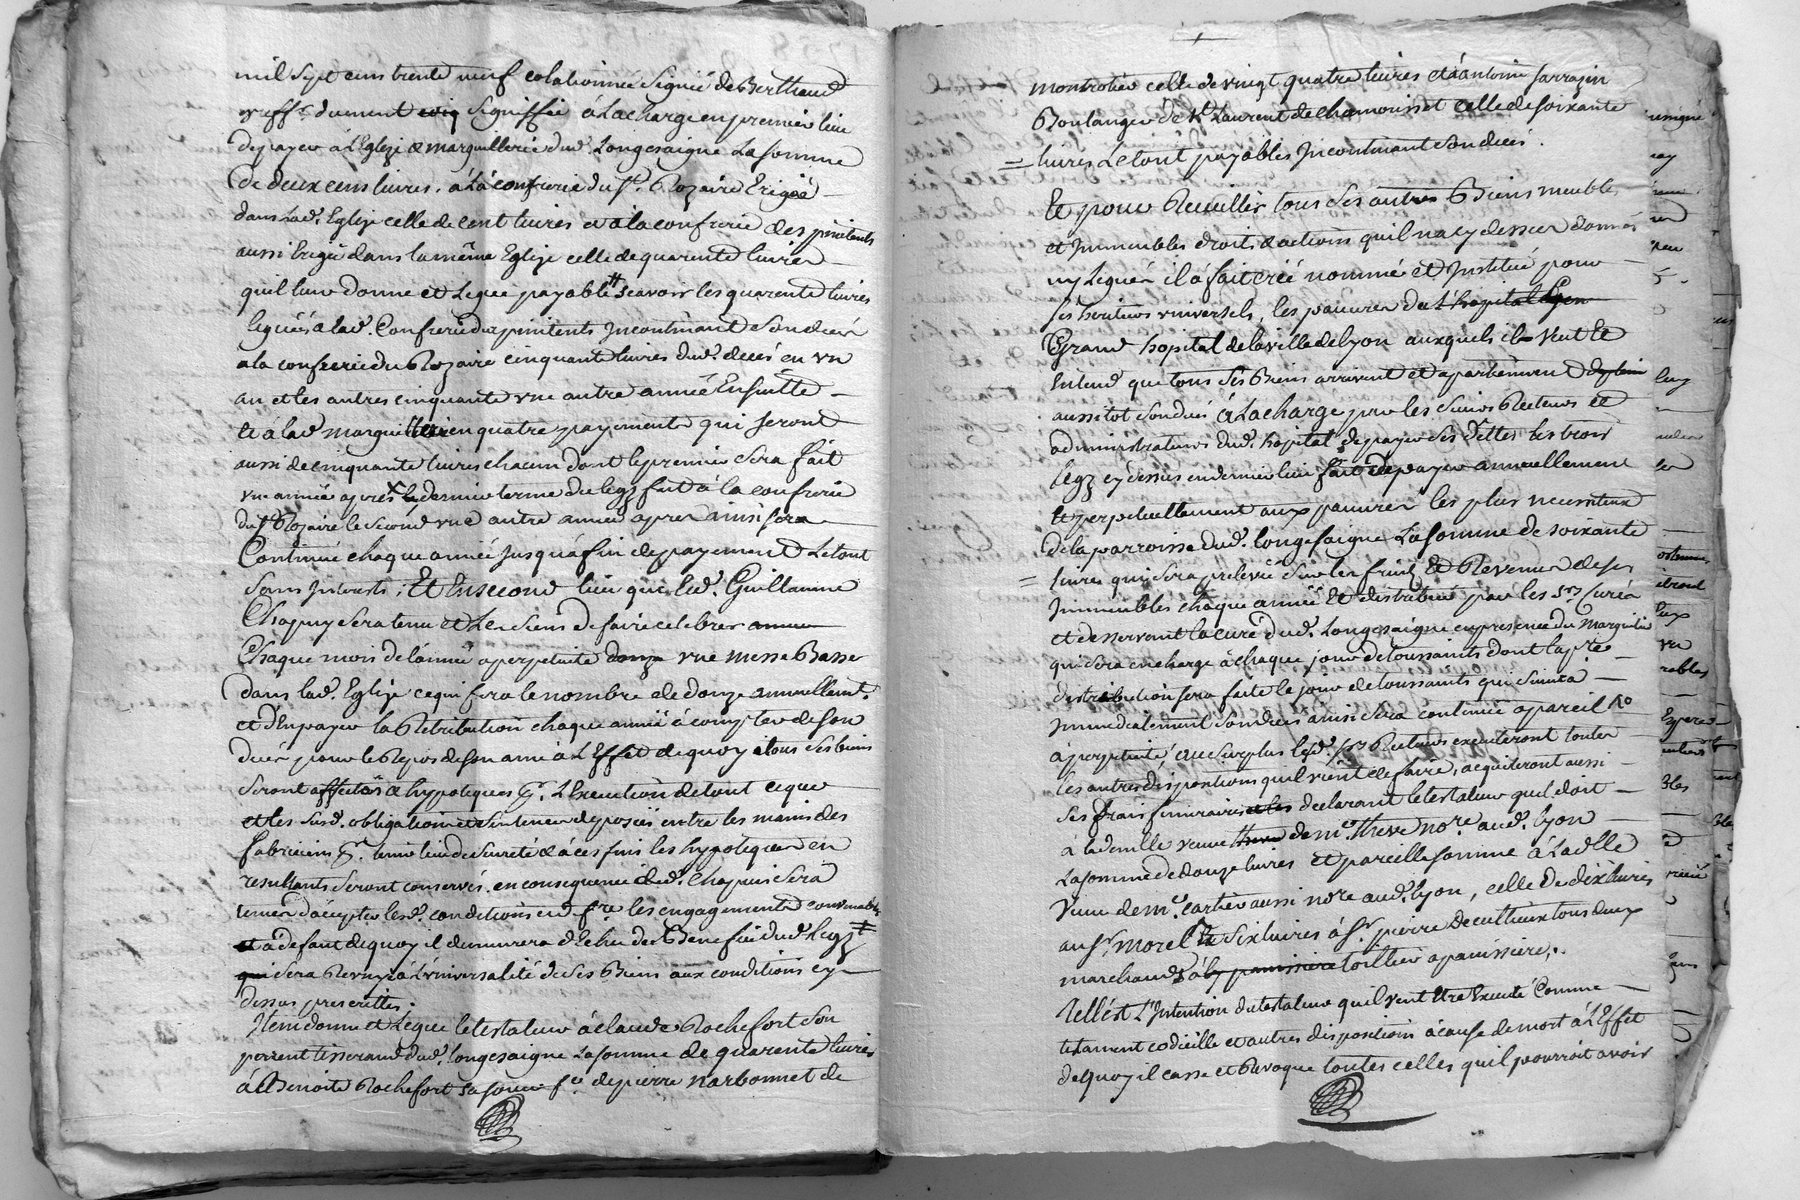 mil sept cens trente neuf colationnée Signée de Berthaud
greff.r dument Signiffié à La charge en premier lieu
de payer à L'Eglize & marguillerie dud. Longesaigne La somme
De deux cens livres. à La confrerie du St. Rozaire Erigée
dans Lad. Eglize celle de cent livres et a la confrerie des penitents
aussi Erigée dans la même Eglize celle de quarente livres
quil leur donne et Legue payable Scavoir les quarente livres
leguées a lad. Confrerie des penitents Incontinant Son deces
a la confrerie du Rozaire cinquante livres dud. deces en un
an et les autres cinquante une autre année Ensuitte
et à lad marguillerie en quatre payements qui seront
aussi de cinquante livres chacun dont le premier Sera fait
une année après le dernier terme du legz fait à la confrerie
du St Rozaire le Second une autre année apres ainsi sera
Continué chaque année Jusqu'a fin de payement Le tout
Sans Interests ; Et En second lieu que led. Guillaume
Chapuy Sera tenu et Les Siens de faire celebrer
Chaque mois de l'année a perpetuité une messe Basse
dans lad. Eglize ce qui fera le nombre de douze annuellemt.
et d'En payer la Retribution chaque année à compter de son
deces pour le Repos de son ame à L'Effet de quoy tous Ses biens
Seront affectés & hypotequés pr. L'Execution de tout ce que
et les susd. obligation et Sentence deposées entre les mains des
fabriciens pr. tenir lieu de Seureté & à ces fins les hypoteques en
resultants Seront conservés. en consequence led. Chapuis Sera
tenu d'accepter lesd. conditions en fre les engagements convenables
à defaut de quoy il demeurera d'Echu du Benefice dud. legz
Sera Reuny à L'universalité de Ses Biens aux conditions cy
dessus prescrittes.
Item donne et Legue le testateur à claude Rochefort Son
parent tisserand dud. Longesaigne La somme de quarente livres
à Benoite Rochefort sa soeur fe de pierre narbonnet de
montrotier celle de vingt quatre livres et à antoine sarrazin
Boulanger de St. Laurent de chamousset celle de soixante
livres Le tout payables Incontinant Son deces.
Et pour Recuillir tous Ses autres Biens meubles
et Immeubles droits & actions quil na cy dessus donnés
ny Legués il à fait créé nommé et Institué pour
Ses heritiers universels, les pauvres du
Grand hopital de la ville de Lyon auxquels il Veut Et
Entend que tous Ses Biens arrivent et apartiennent
aussitot Son deces à La charge par les Sieurs Recteurs et
administrateurs dud. hopital de payer Ses dettes Les trois
legz cy dessus en dernier lieu fait de payer annuellement
et perpetuellement aux pauvres les plus necessiteux
de la parroisse dud. Longesaigne La somme de soixante
livres qui sera prelevée Sur les fruits Et Revenus de ses
Immeubles chaque année Et distribuée par les Srs Curés
et desservant la cure dud. Longesaigne en presence du Marguillier
qui sera en charge à chaque jour de toussaints dont la pre
distribution sera faite le jour de toussaints qui suivra
Immediatement Son deces ainsi Sera continué a pareil Jo
à perpetuité, au Surplus lesd. Srs Recteurs executeront toutes
les autres dispositions quil vient de faire, acquiteront aussi
Ses frais funeraires declarant le testateur quil doit
à la demlle veuve de me. Theve nore. aud. Lyon
La somme de douze livres et pareille somme à Ladlle
Veuve de me. cartier aussi nore aud. Lyon, celle de dix livres
au Sr. morel Et Six livres à Sr. pierre Decultieux tous deux
marchands toillier a panissiere,.
Tell'est L'Intention du testateur quil veut Etre Executé Comme
testament codicille et autres dispositions à cause de mort à L'Effet
de quoy il casse et Revoque toutes celles quil pourroit avoir